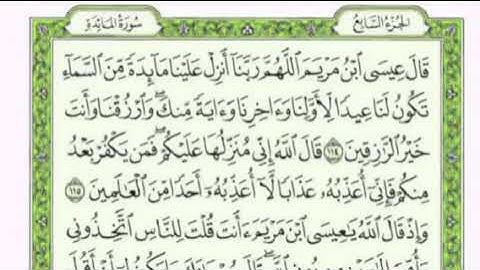 الجزء السابع
سورة المائدة
قَالَ عِيسَى ٱبۡنُ مَرۡيَمَ ٱللَّهُمَّ رَبَّنَآ أَنزِلۡ عَلَيۡنَا مَآئِدَةٗ مِّنَ ٱلسَّمَآءِ
تَكُونُ لَنَا عِيدٗا لِّأَوَّلِنَا وَءَاخِرِنَا وَءَايَةٗ مِّنكَۖ وَٱرۡزُقۡنَا وَأَنتَ
خَيۡرُ ٱلرَّٰزِقِينَ ١١٤ قَالَ ٱللَّهُ إِنِّي مُنَزِّلُهَا عَلَيۡكُمۡۖ فَمَن يَكۡفُرۡ بَعۡدُ
مِنكُمۡ فَإِنِّيٓ أُعَذِّبُهُۥ عَذَابٗا لَّآ أُعَذِّبُهُۥٓ أَحَدٗا مِّنَ ٱلۡعَٰلَمِينَ ١١٥
وَإِذۡ قَالَ ٱللَّهُ يَٰعِيسَى ٱبۡنَ مَرۡيَمَ ءَأَنتَ قُلۡتَ لِلنَّاسِ ٱتَّخِذُونِي